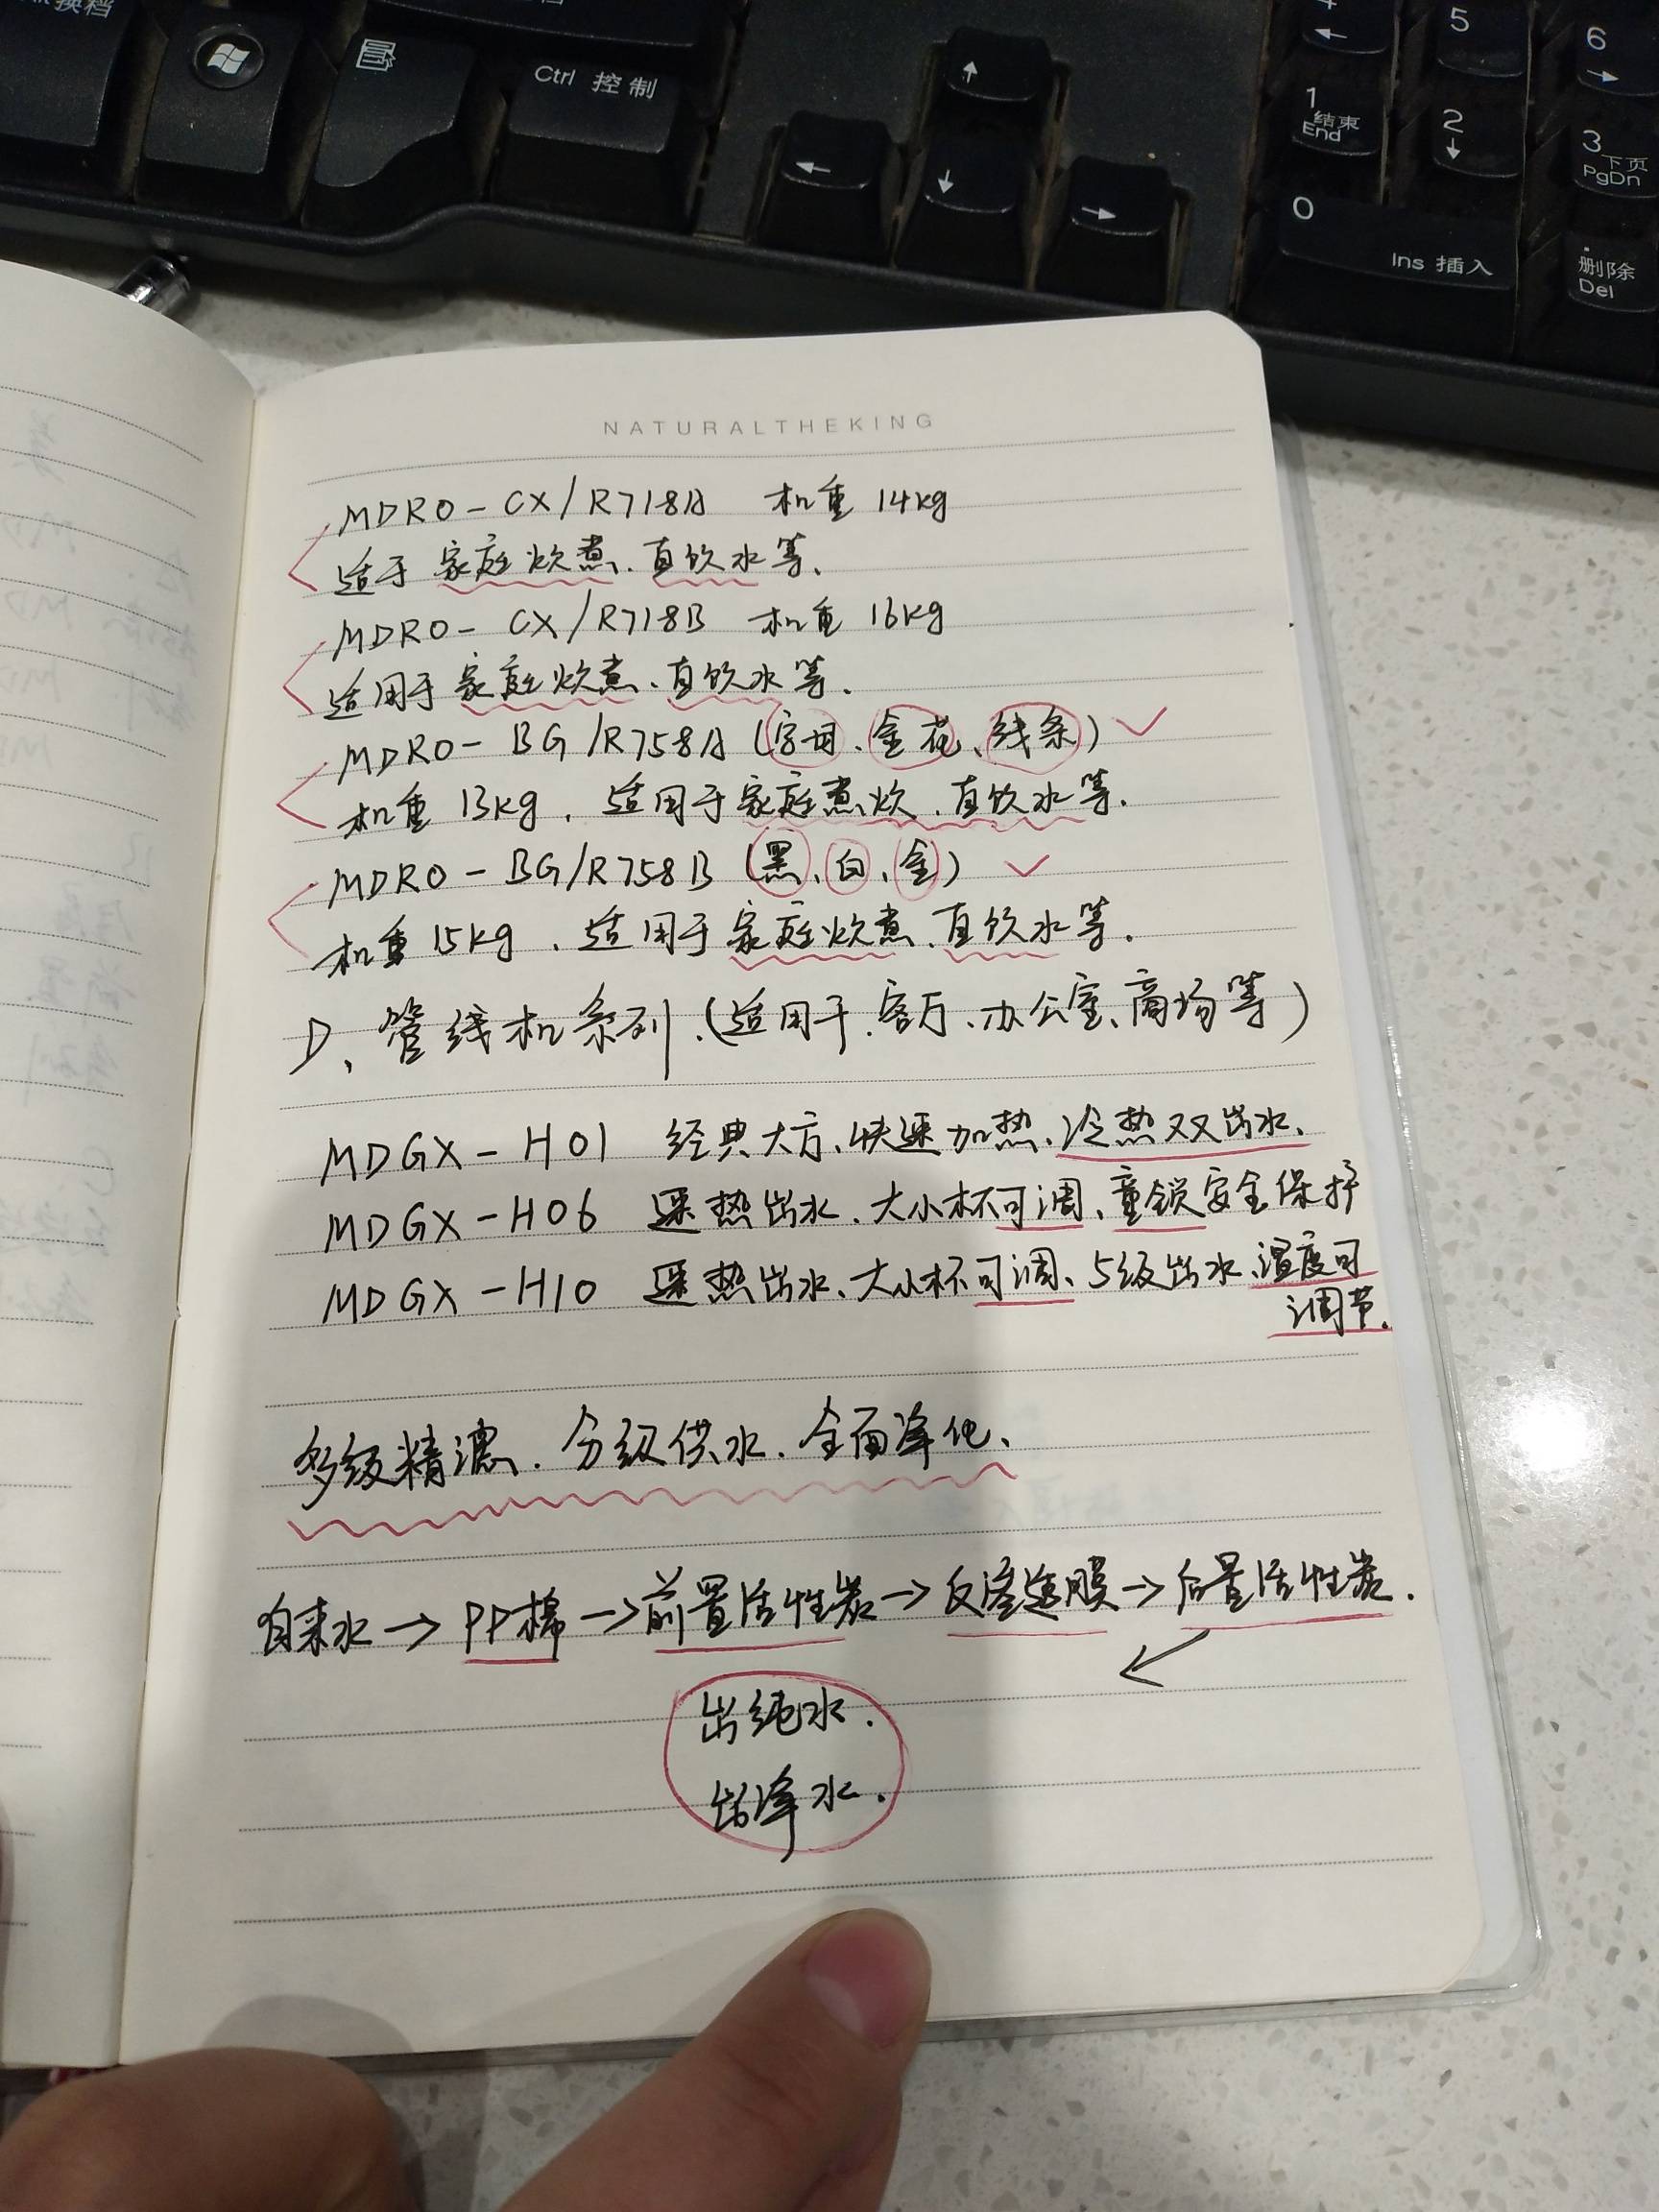 换档
Ctrl 控制
↑
←
↓
→
4
←
5
6
→
1 结束
End
2
↓
3 下页
PgDn
0
Ins 插入
.
删除
Del
NATURALTHEKING
MDRO-CX/R718A 机重 14kg
适于家庭炊煮、直饮水等.
MDRO-CX/R718B 机重 16kg
适用于家庭炊煮、直饮水等.
MDRO-BG/R758A (字母、金花、线条) ✓
机重 13kg, 适用于家庭煮炊、直饮水等.
MDRO-BG/R758B (黑、白、金) ✓
机重 15kg, 适用于家庭炊煮、直饮水等.
D、管线机系列.(适用于.客厅、办公室、商场等)
MDGX-H01 经典大方、快速加热、冷热双出水.
MDGX-H06 速热出水、大小杯可调、童锁安全保护
MDGX-H10 速热出水、大小杯可调、5级出水、温度可
调节.
多级精滤.分级供水.全面净化、
自来水→PP棉→前置活性炭→反渗透膜→后置活性炭.
出纯水.
出净水.